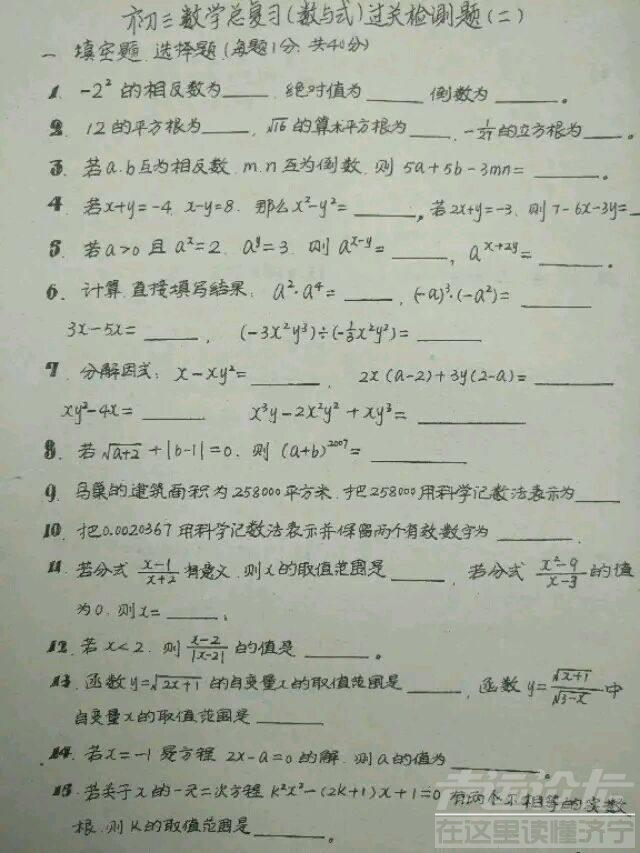 初三数学总复习(数与式)过关检测题(二)
一 填空题、选择题(每题1分,共40分)
1. -2² 的相反数为____, 绝对值为____ 倒数为____。
2. 12的平方根为____, √16的算术平方根为____, -1/27的立方根为____。
3. 若a.b互为相反数, m.n互为倒数, 则 5a+5b-3mn=____。
4. 若x+y=-4, x-y=8. 那么x²-y²=____, 若2x+y=-3, 则7-6x-3y=____
5. 若a>0且aˣ=2, aʸ=3, 则aˣ⁻ʸ=____, aˣ⁺²ʸ=____.
6. 计算,直接填写结果: a²·a⁴=____, (-a)³·(-a²)=____
3x-5x=____, (-3x²y³)÷(-1/3x²y²)=____
7. 分解因式: x-xy²=____, 2x(a-2)+3y(2-a)=____
xy²-4x=____ x³y-2x²y²+xy³=____
8. 若√(a+2)+|b-1|=0. 则(a+b)²⁰⁰⁷=____
9. 鸟巢的建筑面积为258000平方米,把258000用科学记数法表示为____
10. 把0.0020367用科学记数法表示并保留两个有效数字为____.
11. 若分式 (x-1)/(x+2) 有意义, 则x的取值范围是____, 若分式 (x²-9)/(x-3) 的值
为0, 则x=____;
12. 若x<2. 则 (x-2)/|x-2| 的值是____。
13. 函数y=√(2x+1) 的自变量x的取值范围是____, 函数 y=√(x+1)/√(3-x) 中
自变量x的取值范围是____
14. 若x=-1是方程 2x-a=0的解, 则a的值为____.
15. 若关于x的一元二次方程 k²x²-(2k+1)x+1=0 有两个不相等的实数
根, 则K的取值范围是____.
在这里读懂济宁